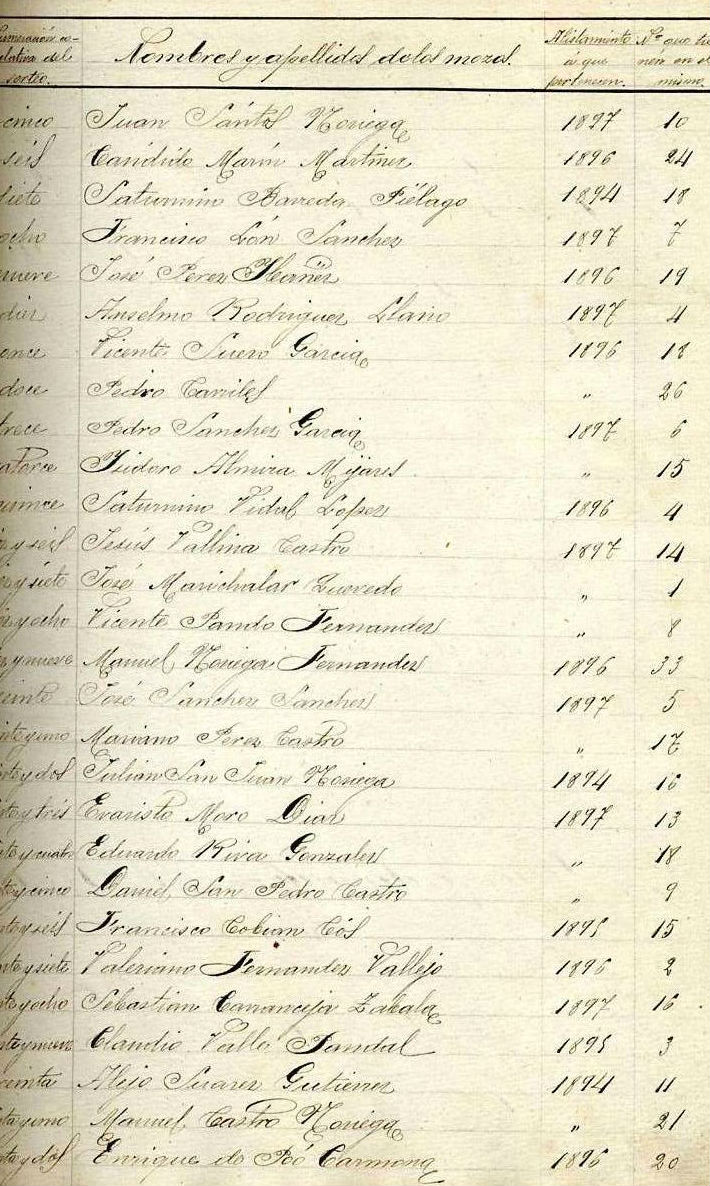 Numeración co- Alistamiento Nº que tie
relativa del Nombres y apellidos de los mozos. á que nen en el
sorteo. pertenecen. mismo.
cinco Juan Sántos Noriega 1897 10
seis Candido Marin Martinez 1896 24
siete Saturnino Barreda Piélago 1894 18
ocho Francisco Lón Sanchez 1897 7
nueve José Perez Ibañez 1896 19
diez Anselmo Rodriguez Llano 1897 4
once Vicente Suero Garcia 1896 18
doce Pedro Caviles " 26
trece Pedro Sanchez Garcia 1897 6
catorce Isidoro Almira Mijares " 15
quince Saturnino Vidal Lopez 1896 4
diez y seis Jesús Vallina Castro 1897 14
diez y siete José Marichalar Quevedo " 1
diez y ocho Vicente Pando Fernandez " 8
diez y nueve Manuel Noriega Fernandez 1896 33
veinte José Sanchez Sanchez 1897 5
veinte y uno Mariano Perez Castro " 17
veinte y dos Julian San Juan Noriega 1894 16
veinte y trés Evaristo Moro Diaz 1897 13
veinte y cuatro Eduardo Riva Gonzalez " 18
veinte y cinco Daniel San Pedro Castro " 9
veinte y seis Francisco Cobian Cós 1895 15
veinte y siete Valeriano Fernandez Vallejo 1896 2
veinte y ocho Sebastian Carranceja Zabala 1897 16
veinte y nueve Claudio Valle Pandal 1895 3
treinta Alejo Suarez Gutierrez 1894 11
treinta y uno Manuel Castro Noriega " 21
treinta y dos Enrique de Póo Carmona 1896 20